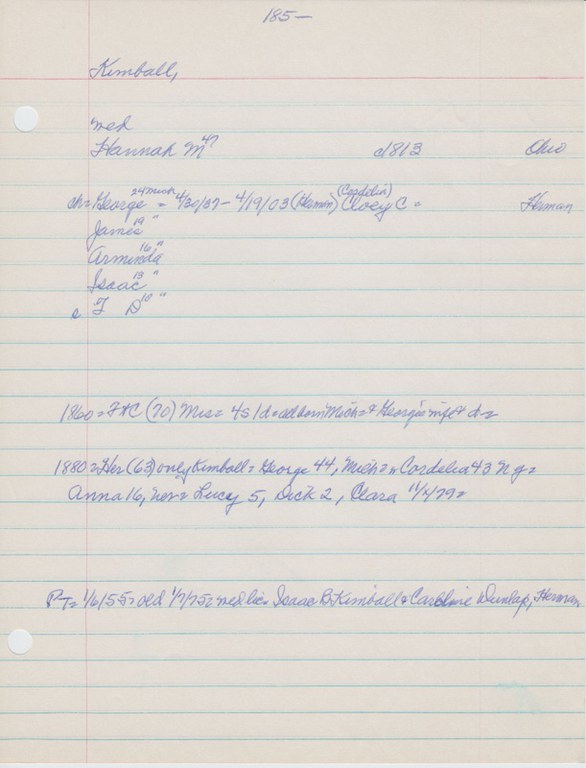 185—
Kimball,
med
Hannah M 47 c1813 Ohio
ch= George 24 Mich = 4/30/37- 4/19/03 (Hermon) (Cordelia) Cloey C " Herman
James 19 "
Arminda 16 "
Isaac 13 "
c F D 10 "
1860= F+C (70) Mrs= 4s 1d= all born Mich= + George's wife + d=
1880= Her (63) only Kimball= George 44, Mich= " Cordelia 43 N Y=
Anna 16, Lucy 5, Dick 2, Clara 11/ /79=
PT= 1/6/55= old 1/7/75= med lic= Isaac B. Kimball + Caroline Dunlap, Herman